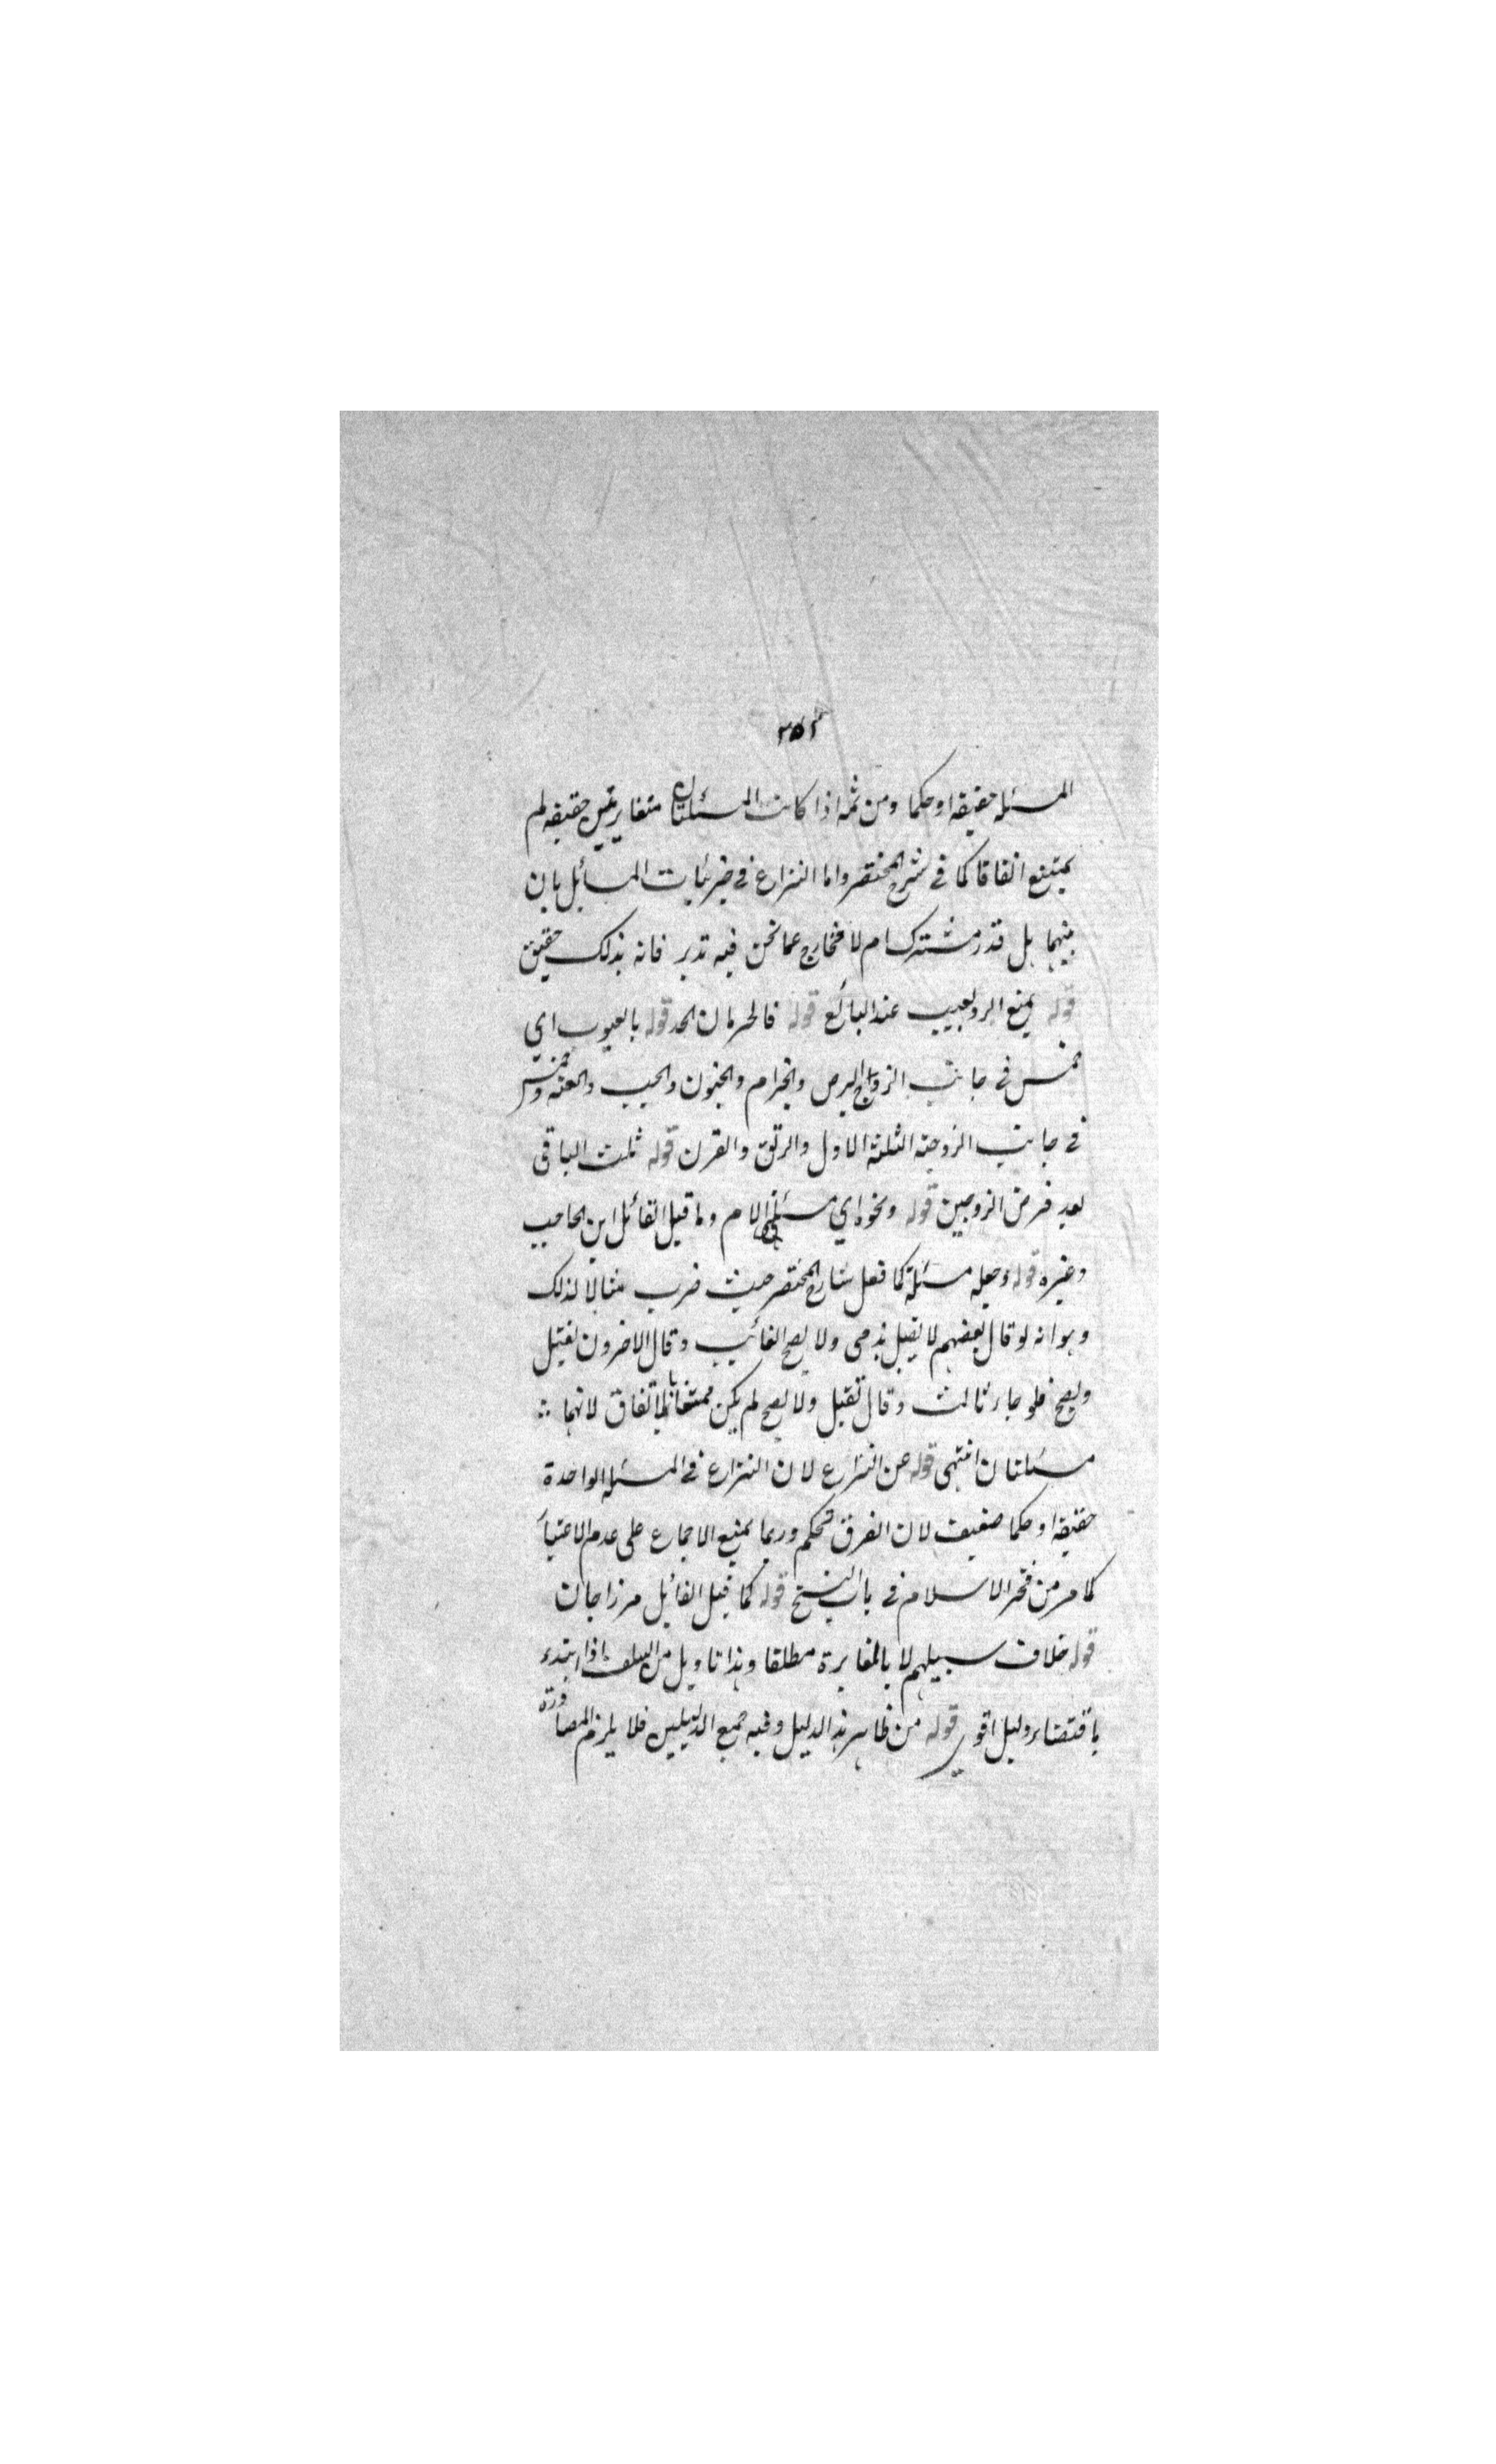 ٣٥٢
المسئله حقيقة او حكما ومن ثمه اذا كانت المسئلتان متغايرتين حقيقه لم
يمتنع اتفاقا كما فى شرح المختصر واما النزاع فى جزئيات المسائل بان
بينهما هل قدر مشترك ام لا فخارج عما نحن فيه تدبر فانه بذلك حقيق
قوله يمنع الرد لعيب عند البائع قوله فالحرمان الحد قوله بالعيوب اي
خمس فى جانب الزوج البرص والجذام والجنون والجب والعنه وخمس
فى جانب الزوجة الثلثة الاول والرتق والقرن قوله ثلث الباقى
بعد فرض الزوجين قوله ونحوه اي مسئلة الام وما قيل القائل ابن الحاجب
وغيره قوله وجعله مسئلة كما فعل شارح المختصر حيث ضرب مثالا لذلك
وهو انه لو قال بعضهم لا يقبل بذمى ولا يصح الغائب وقال الاخرون يقتل
ويصح فلو جاء ثالث وقال تقبل ولا يصح لم يكن ممتنعا بالاتفاق لانهما
مسئلتان انتهى قوله عن النزاع لان النزاع فى المسئله الواحدة
حقيقة او حكما ضعيف لان الفرق تحكم وربما يمنع الاجماع على عدم الاعتبار
كما مر من فخر الاسلام فى باب النسخ قوله كما قيل القائل مرزاجان
قوله خلاف سبيلهم لا بالمغايرة مطلقا وهذا تاويل من السلف اذا ابتدء
باقتضاء دليل اقوى قوله من ظاهر هذا الدليل وفيه جمع الدليلين فلا يلزم المصادرة